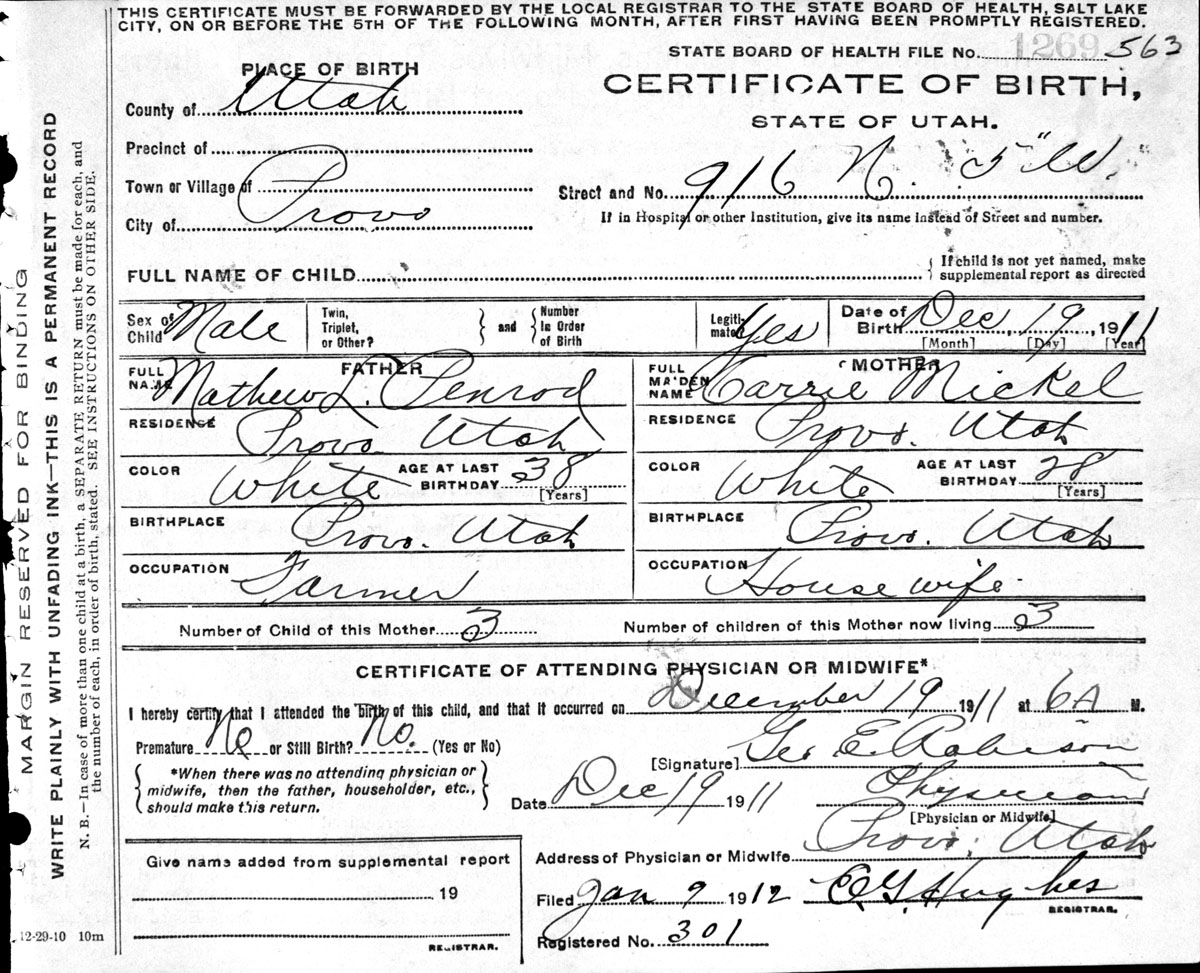 THIS CERTIFICATE MUST BE FORWARDED BY THE LOCAL REGISTRAR TO THE STATE BOARD OF HEALTH, SALT LAKE
CITY, ON OR BEFORE THE 5TH OF THE FOLLOWING MONTH, AFTER FIRST HAVING BEEN PROMPTLY REGISTERED.
STATE BOARD OF HEALTH FILE No. 1269 563
PLACE OF BIRTH
CERTIFICATE OF BIRTH,
STATE OF UTAH.
County of Utah
Precinct of
Town or Village of
City of Provo
Street and No. 916 N. 5 " W.
If in Hospital or other Institution, give its name instead of Street and number.
FULL NAME OF CHILD
{ If child is not yet named, make
supplemental report as directed
Sex of Child Male
Twin, Triplet, or Other? } and { Number In Order of Birth
Legitimate? Yes
Date of Birth Dec 19, 1911
[Month] [Day] [Year]
FATHER
FULL NAME Mathew L. Penrod
RESIDENCE Provo. Utah
COLOR White AGE AT LAST BIRTHDAY 38
[Years]
BIRTHPLACE Provo. Utah
OCCUPATION Farmer
MOTHER
FULL MAIDEN NAME Carrie Mickel
RESIDENCE Provo. Utah
COLOR White AGE AT LAST BIRTHDAY 28
[Years]
BIRTHPLACE Provo. Utah
OCCUPATION House wife
Number of Child of this Mother 3 Number of children of this Mother now living 3
CERTIFICATE OF ATTENDING PHYSICIAN OR MIDWIFE*
I hereby certify that I attended the birth of this child, and that it occurred on December 19 1911 at 6 A M.
Premature No or Still Birth? No. (Yes or No)
{ *When there was no attending physician or
midwife, then the father, householder, etc.,
should make this return. }
[Signature] Geo E. Robison
Date Dec 19 1911 Physician
[Physician or Midwife]
Address of Physician or Midwife Provo, Utah
Filed Jan 9 1912 E. G. Hughes
REGISTRAR.
Registered No. 301
Give name added from supplemental report
19
REGISTRAR.
12-29-10 10m
MARGIN RESERVED FOR BINDING
WRITE PLAINLY WITH UNFADING INK—THIS IS A PERMANENT RECORD
N. B.—In case of more than one child at a birth, a SEPARATE RETURN must be made for each, and
the number of each, in order of birth, stated. SEE INSTRUCTIONS ON OTHER SIDE.